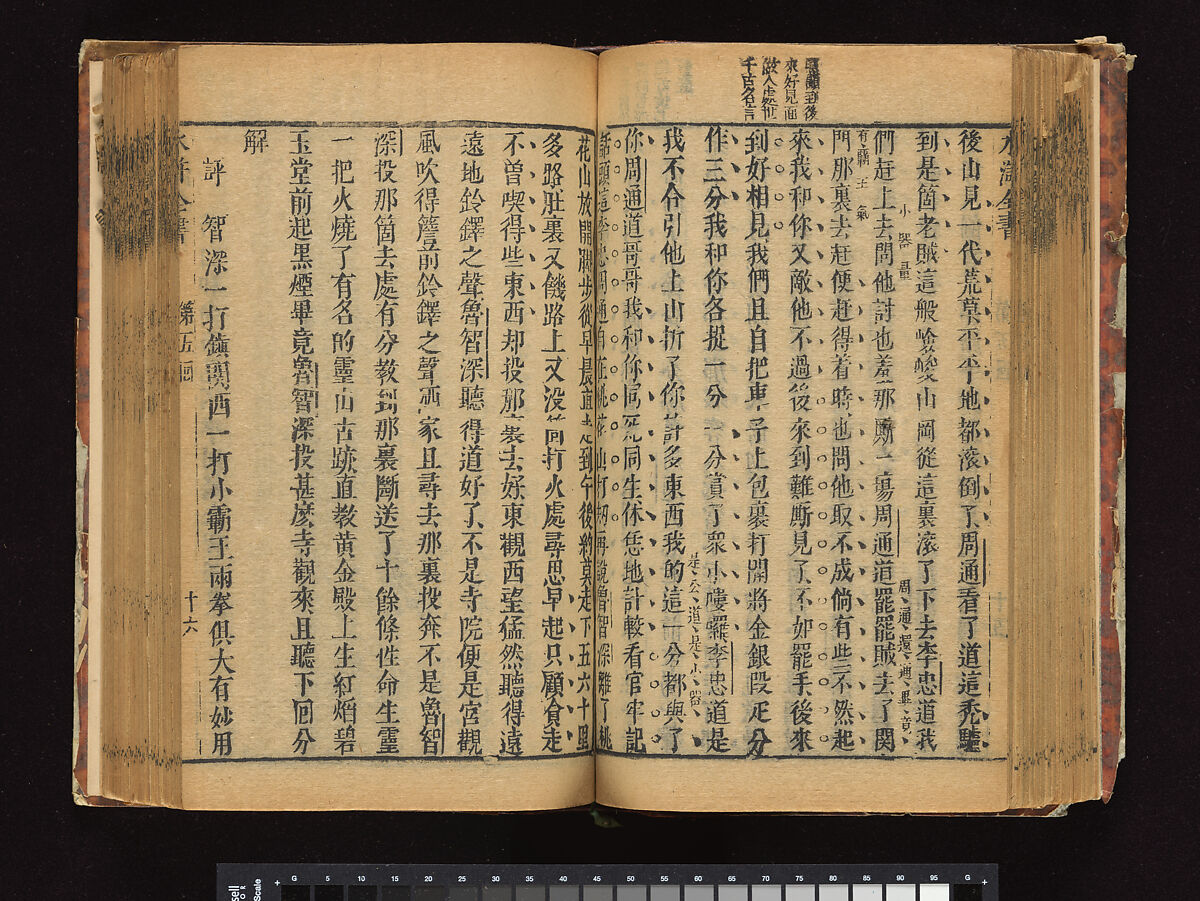 來好見面
做人處世
千古名言
水滸全書
後山見一代荒草平平地都滾倒了周通看了道這禿驢
到是箇老賊這般嶮峻山岡從這裏滾了下去李忠道我
們赶上去問他討也羞那厮一場周通道罷罷賊去了關
小器量
周通還通畢竟
門那裏去赶便赶得着時也問他取不成倘有些不然起
有霸王氣
來我和你又敵他不過後來到難厮見了不如罷手後來
到好相見我們且自把車子上包裹打開將金銀段疋分
作三分我和你各捉一分一分賞了衆小嘍囉李忠道是
我不合引他上山折了你許多東西我的這一分都與了
是公道是小器
你周通道哥哥我和你同死同生休恁地計較看官牢記
話頭這李忠周通自在桃花山打刼再說魯智深離了桃
花山放開脚步從早晨直走到午後約莫走下五六十里
多路肚裏又饑路上又沒箇打火處尋思早起只顧貪走
不曾喫得些東西却投那裏去好東觀西望猛然聽得遠
遠地鈴鐸之聲魯智深聽得道好了不是寺院便是宮觀
風吹得簷前鈴鐸之聲洒家且尋去那裏投奔不是魯智
深投那箇去處有分教到那裏斷送了十餘條性命生靈
一把火燒了有名的靈山古跡直教黃金殿上生紅焰碧
玉堂前起黑煙畢竟魯智深投甚麽寺觀來且聽下回分
解
評 智深一打鎮關西一打小霸王兩拳俱大有妙用
水滸全書 第五回 十六
G 5 10 15 20 25 30 35 40 45 50 55 60 65 70 75 80 85 90 95 G